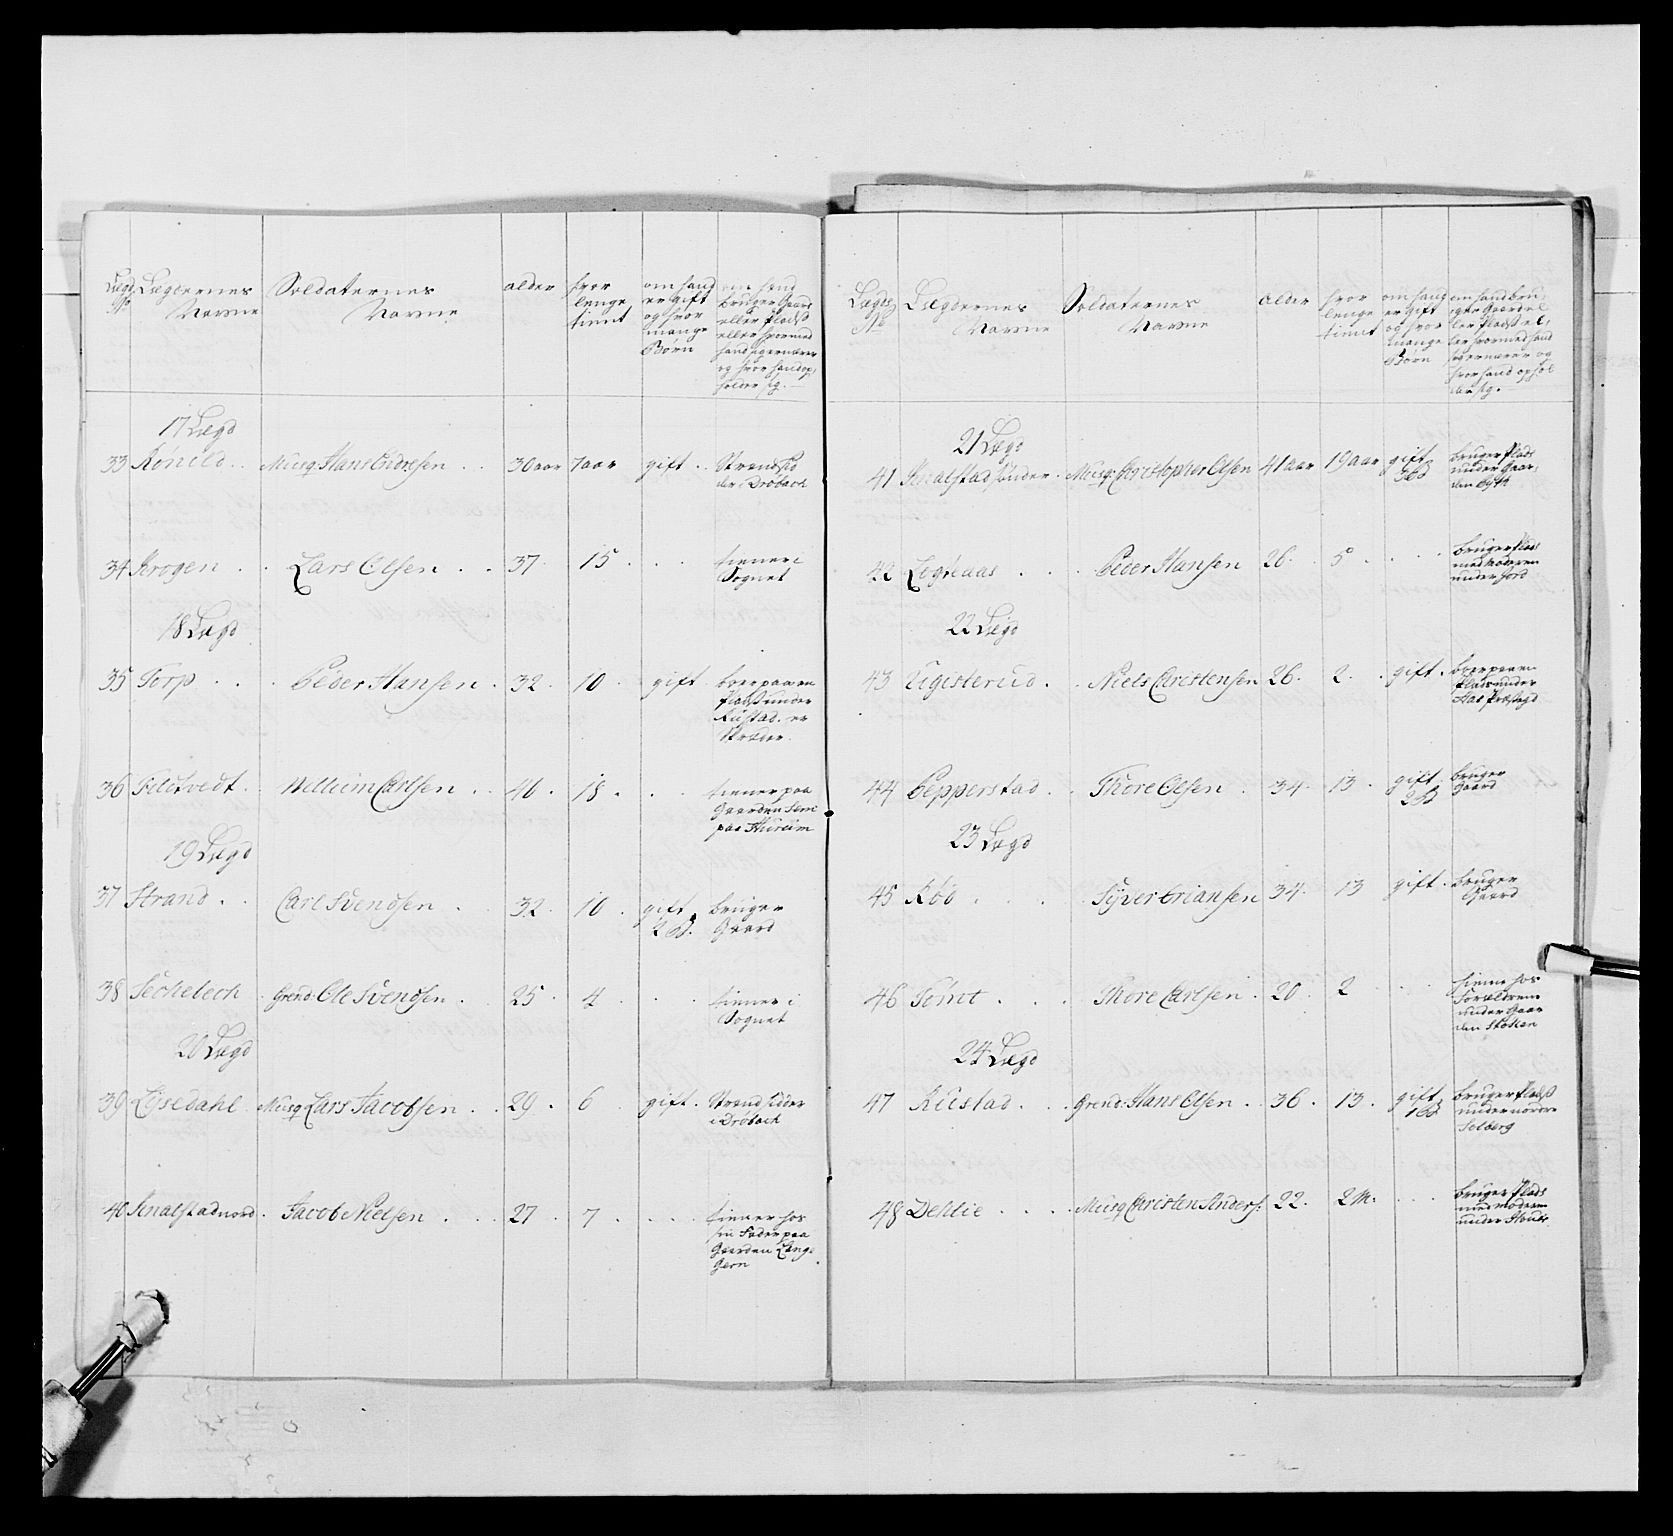 Lægd No
Lægdernes Navne
Soldaternes Navne
alder
hvor lenge tient
om hand er gift og hvor mange Børn
om hand bruger Gaard eller Plads eller hvormed hand sig ernærer og hvor hand op holder sig.
17 Lægd
33 Rønild . . Musq Hans Endresen . . 30 aar 7 aar gift . .
Drøbach
34 Krogen . . Lars Olsen . . 37 . 15 . . . tiener i
Sognet
18 Lægd
35 Torp . . . Peder Hansen . 32 . 10 . gift . boer paa en
Plads under
Rustad. er
Skræder.
36 Tildtvedt . . Willum Carlsen . . 40 . 18 . . . tiener paa
Gaarden
paa Hurum
19 Lægd
37 Strand . . Carl Svendsen . 32 . 10 . gift . bruger
2 B. Gaard
38 . Grend: Ole Svendsen . 25 . 4 . . . tiener i
Sognet
20 Lægd
39 Lysedahl Musq Lars Jacobsen . . 29 . 6 gift . Strand sidder
i Drøbach
40 Knalstad nord . Jacob Nielsen . . . 27 . 7 . . . . tiener hos
sin Fader paa
Gaarden Lang
Gern
Lægds No
Lægdernes Navne
Soldaternes Navne
alder
hvor lenge tient
om hand er gift og hvor mange Børn
om hand bru ger Gaard el ler Plads el ler hvormed hand og hvor hand ophol der sig.
21 Lægd
41 Knalstad sønder . Musq: Christopher Olsen 41 aar 19 aar gift bruger Plads
3 B under Gaar
den
42 . . . Peder Hansen 26 . 5 . . . bruger Plads
med Moderen
under
22 Lægd
43 Ugisterud . . Niels Christensen 26 . 2 . . gift . boer paa en
Plads under
44 Pepperstad . . Thore Olsen . 34 . 13 . gift . bruger
2 B Gaard
23 Lægd
45 Rød . . . . Syver Eriansen 34 . 13 gift . bruger
Gaard
46 Tomt . . . Thore Carlsen . 20 . 2 . . . tiener hos
Forældrene
under Gaar
den
24 Lægd
47 Rustad . . . Grend: Hans Olsen . . 36 . 13 . gift . bruger Plads
1 B under nordre
Solberg
48 Dehlie . . . . Musq Christen Anders: 22 . 2 M. . . . bruger Plads
med Moderen
under